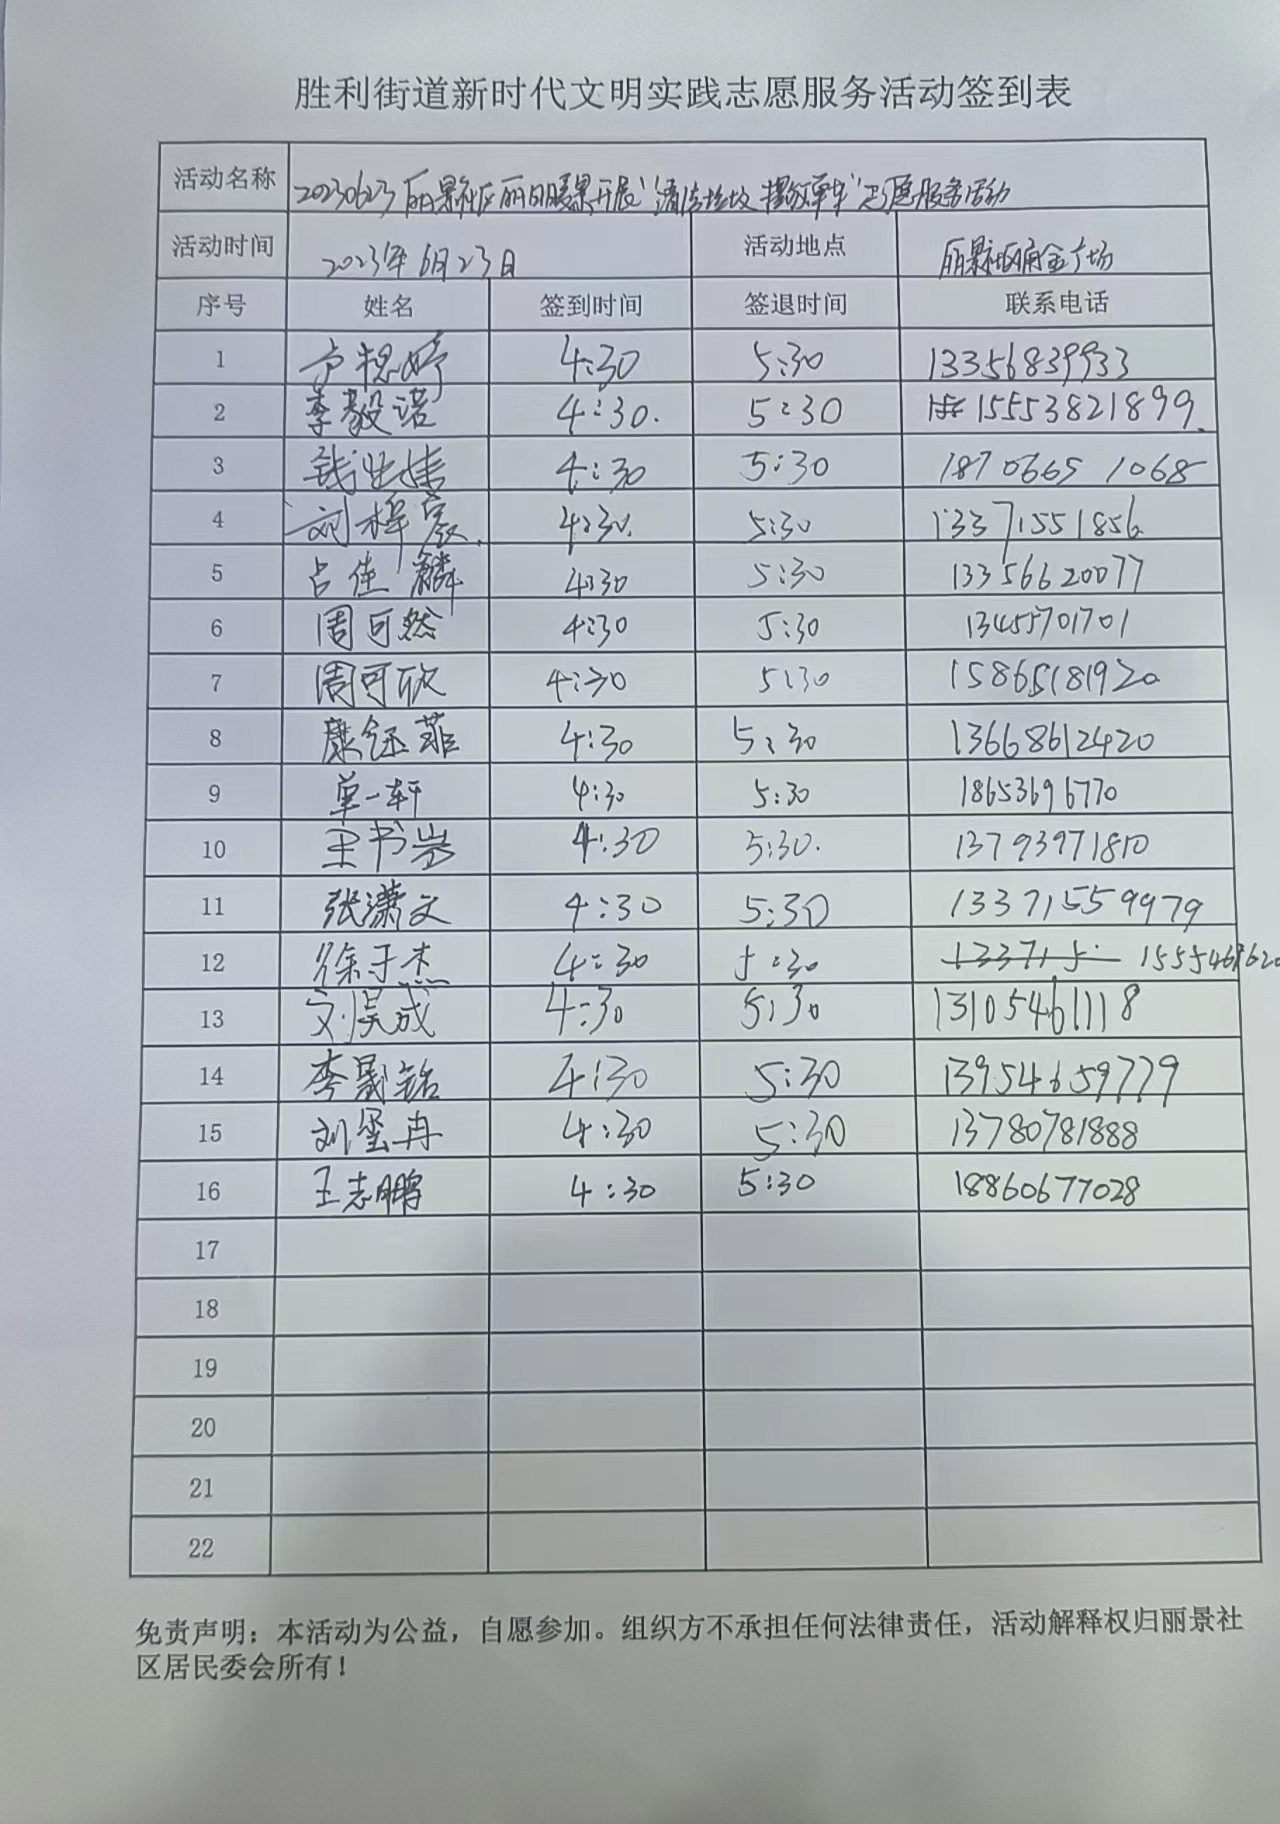 胜利街道新时代文明实践志愿服务活动签到表
活动名称 20230623丽景社区丽日暖景开展"清洁垃圾 摆放单车"志愿服务活动
活动时间 2023年6月23日 活动地点 丽景社区 金广场
序号 姓名 签到时间 签退时间 联系电话
1 方 婷 4:30 5:30 13356839933
2 李毅诺 4:30. 5:30 15553821899.
3 钱 4:30 5:30 18706651068
4 刘梓宸. 4:30. 5:30 13371551856
5 占佳麟 4:30 5:30 13356620077
6 周可然 4:30 5:30 13455701701
7 周可欣 4:30 5:30 15865181920
8 康钰菲 4:30 5:30 13668612420
9 单一轩 4:30 5:30 18653696770
10 王书 4:30 5:30. 13793971810
11 张潇文 4:30 5:30 133715559979
12 徐子杰 4:30 5:30 133715
13 刘昊成 4:30 5:30 13105461118
14 李晟铭 4:30 5:30 13954659779
15 刘玺冉 4:30 5:30 13780781888
16 王志鹏 4:30 5:30 18860677028
17
18
19
20
21
22
免责声明：本活动为公益，自愿参加。组织方不承担任何法律责任，活动解释权归丽景社
区居民委会所有！